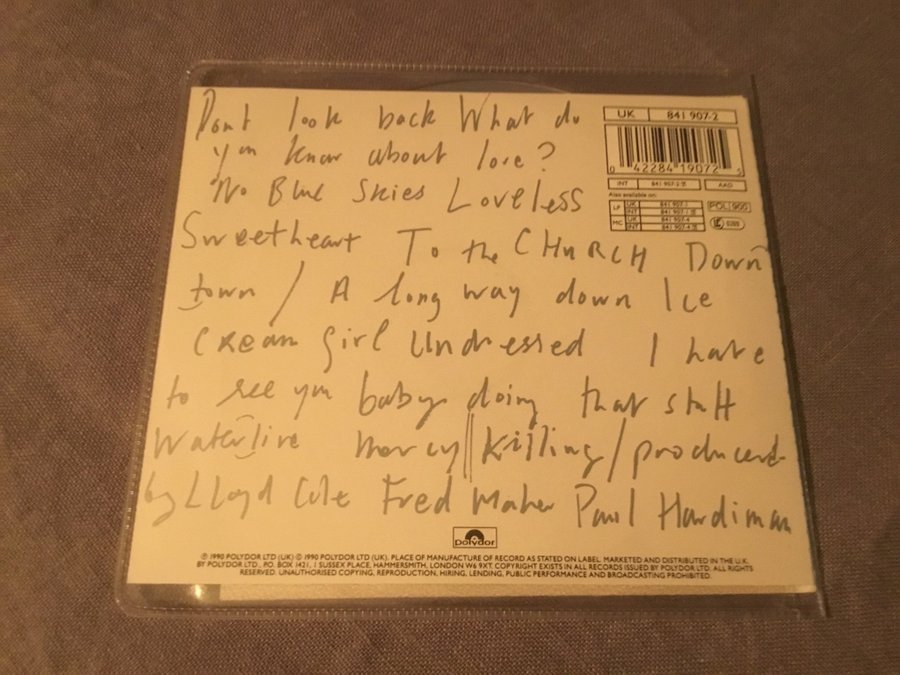 Dont look back What do
you know about love?
No Blue Skies Loveless
Sweetheart To the CHURCH Down
town / A long way down Ice
Cream Girl Undressed I hate
to see you baby doing that stuff
Waterline mercy killing / produced
by Lloyd Cole Fred Maher Paul Hardiman
UK 841 907-2
0 42284 19072 5
INT 841 907-2 AAD
Also available on:
LP UK 841 907-1
INT 841 907-1
MC UK 841 907-4
INT 841 907-4
POL 900
polydor
℗ 1990 POLYDOR LTD (UK) © 1990 POLYDOR LTD (UK). PLACE OF MANUFACTURE OF RECORD AS STATED ON LABEL. MARKETED AND DISTRIBUTED IN THE U.K.
BY POLYDOR LTD., P.O. BOX 1421, 1 SUSSEX PLACE, HAMMERSMITH, LONDON W6 9XT COPYRIGHT EXISTS IN ALL RECORDS ISSUED BY POLYDOR LTD. ALL RIGHTS
RESERVED. UNAUTHORISED COPYING, REPRODUCTION, HIRING, LENDING, PUBLIC PERFORMANCE AND BROADCASTING PROHIBITED.